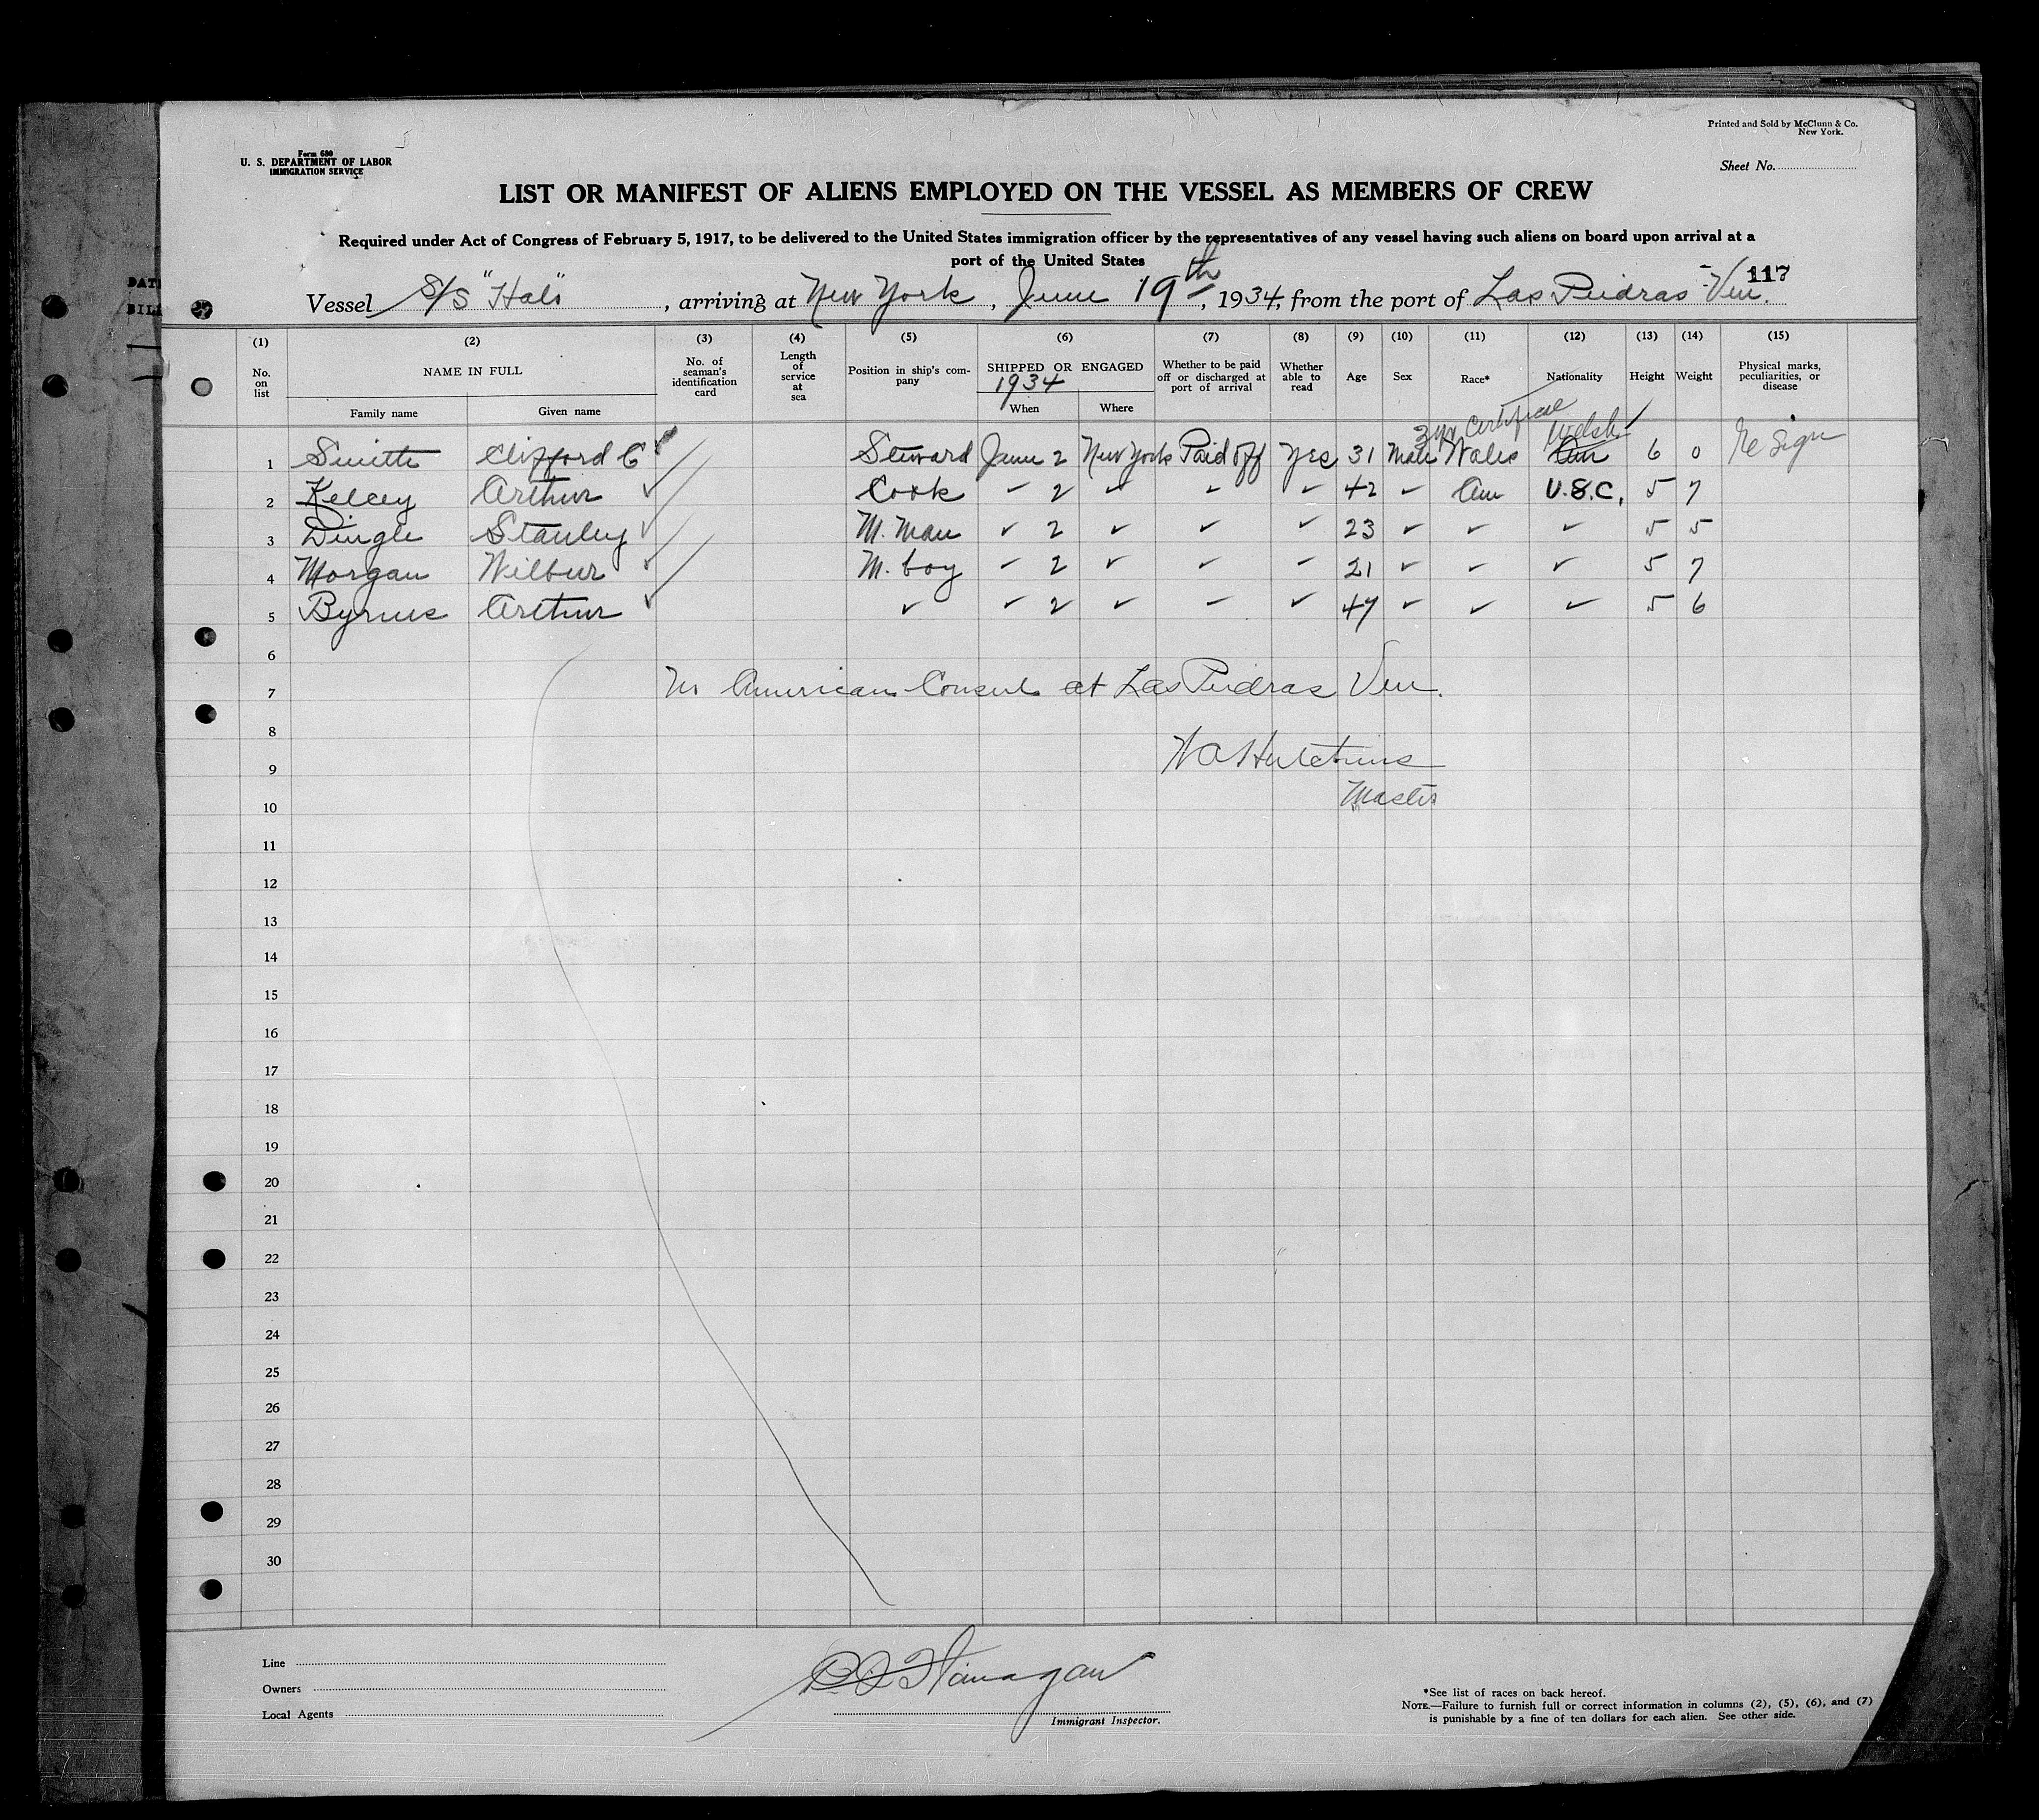 Printed and Sold by McClunn & Co.
New York.
Form 680
U. S. DEPARTMENT OF LABOR
IMMIGRATION SERVICE
Sheet No.
LIST OR MANIFEST OF ALIENS EMPLOYED ON THE VESSEL AS MEMBERS OF CREW
Required under Act of Congress of February 5, 1917, to be delivered to the United States immigration officer by the representatives of any vessel having such aliens on board upon arrival at a
port of the United States
117
Vessel S/S "Halo", arriving at New York, June 19th, 1934, from the port of Las Piedras Ven.
(1) (2) (3) (4) (5) (6) (7) (8) (9) (10) (11) (12) (13) (14) (15)
No. on list NAME IN FULL Family name Given name No. of seaman's identification card Length of service at sea Position in ship's company SHIPPED OR ENGAGED 1934 When Where Whether to be paid off or discharged at port of arrival Whether able to read Age Sex Race* Nationality Height Weight Physical marks, peculiarities, or disease
Certificate
Welsh
1 Smith Clifford C Steward June 2 New York Paid Off Yes 31 Male Wales Am 6 0 Re Sign
2 Kelcey Arthur ✓ Cook " 2 " " " 42 " Am U.S.C. 5 7
3 Dingle Stanley ✓ M. Man " 2 " " " 23 " " " 5 5
4 Morgan Wilbur ✓ M. boy " 2 " " " 21 " " " 5 7
5 Byrnes Arthur ✓ " " 2 " " " 47 " " " 5 6
6
7 No American Consul at Las Piedras Ven.
8
9 W A Hutchins
10 Master
11
12
13
14
15
16
17
18
19
20
21
22
23
24
25
26
27
28
29
30
Line
Owners
Local Agents
Flanagan
Immigrant Inspector.
*See list of races on back hereof.
NOTE.—Failure to furnish full or correct information in columns (2), (5), (6), and (7)
is punishable by a fine of ten dollars for each alien. See other side.